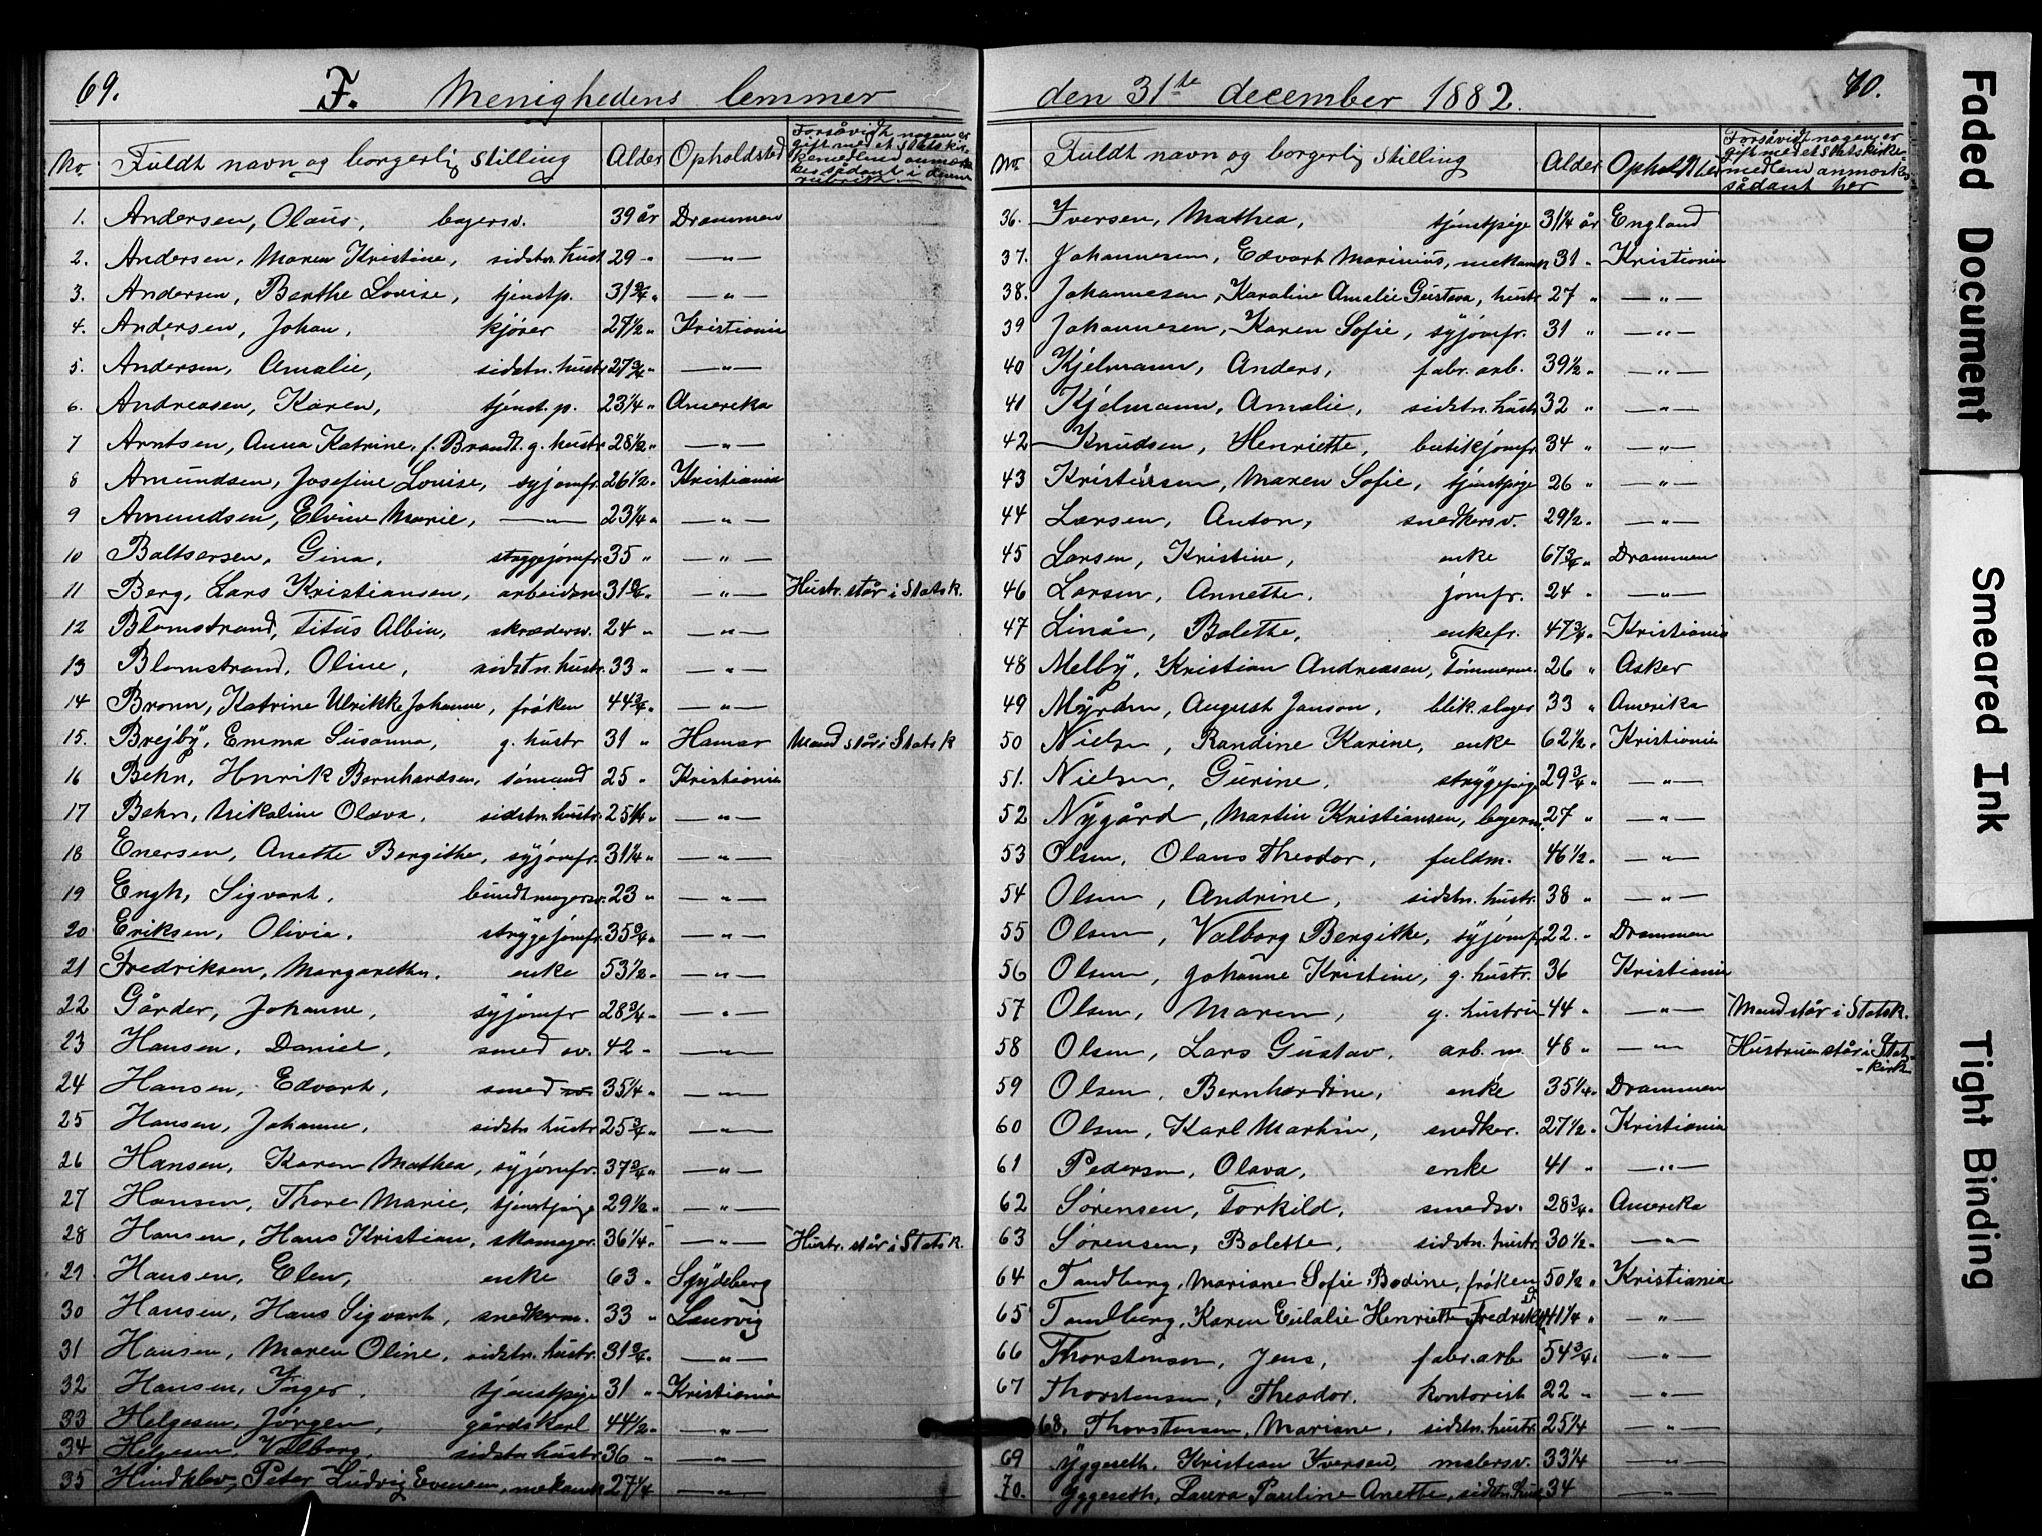 69.
F. Menighedens lemmer
No. Fuldt navn og borgerlig stilling Alder Opholdsted Forsåvidt nogen er
gift med et Statskir-
kemedlem anmær-
kes sådant i denne
rubrik.
1. Andersen, Olaus, bagersv. 39 år Drammen
2. Andersen, Maren Kristine, sidstn. hust 29 " — " —
3. Andersen, Berthe Lovise, tjenstp. 31 3/4 " — " —
4. Andersen, Johan, kjører 27 1/2 " Kristiania
5. Andersen, Amalie, sidstn. hustr 27 3/4 " — " —
6. Andreasen, Karen, tjenst. p. 23 1/4 " Amerika
7 Arntsen, Anna Katrine, f. Brandt. g. hustr 28 1/2 " — " —
8 Amundsen, Josefine Louise, syjomfr. 26 1/2 " Kristiania
9 Amundsen, Elvine Marie, — " — 23 1/4 " — " —
10 Baltsersen, Gina, strygejomfr. 35 " — " —
11 Berg, Lars Kristiansen, arbeidsm 31 3/4 " — " — Hustr. står i Statsk.
12 Blomstrand, Titus Albin, skrædersv. 24 " — " —
13 Blomstrand, Oline, sidstn. hustr. 33 " — " —
14 Bronn, Katrine Ulrikke Johanne, frøken 44 3/4 " — " —
15. Brejby, Emma Susanna, g. hustr 31 " Hamar Mand står i Statsk
16 Behn, Henrik Bernhardsen, sømand 25 " Kristiania
17 Behn, Nikoline Olava, sidstn. hustr. 25 1/4 " — " —
18 Enersen, Anette Bergithe, syjomfr. 31 1/4 " — " —
19 Engh, Sigvart, bundtmagersv. 23 " — " —
20 Eriksen, Olivia, strygejomfr. 35 3/4 " — " —
21 Fredriksen, Margarethe, enke 53 1/2 " — " —
22 Gårder, Johanne, syjomfr 28 3/4 " — " —
23 Hansen, Daniel, smed sv. 42 " — " —
24 Hansen, Edvart, smed sv. 35 1/4 " — " —
25 Hansen, Johanne, sidstn hustr 25 3/4 " — " —
26 Hansen, Karen Mathea, syjomfr. 37 3/4 " — " —
27 Hansen, Thore Marie, tjenstpige 29 1/2 " — " —
28 Hansen, Hans Kristian, skomager. 36 1/4 " — " — Hustr. står i Statsk.
29 Hansen, Elen, enke 63 " Spydeberg
30 Hansen, Hans Sigvart, snedkerm. 33 " Laurvig
31 Hansen, Maren Oline, sidstn. hustr. 31 3/4 " — " —
32 Hansen, Inger, tjenstpige 31 " Kristiania
33 Helgesen, Jörgen, gårdskarl 44 1/2 " — " —
34 Helgesen, Valborg, sidstn hustr 36 " — " —
35 Hindklev, Peter Ludvig Evensen, mekanik 27 1/4 — " —
den 31te december 1882.
70.
No. Fuldt navn og borgerlig stilling Alder Opholdsted Forsåvidt nogen er
gift med et Statskirke-
medlem anmærkes
sådant her
36. Iversen, Mathea, tjenstpige 31 1/4 år England
37. Johannesen, Edvart Marinius, mekanik 31 " Kristiania
38. Johannesen, Karoline Amalie Gustava, hustr 27 " — " —
39 Johannesen, Karen Sofie, syjomfr. 31 " — " —
40 Kjelmann, Anders, fabr. arb. 39 1/2 " — " —
41 Kjelmann, Amalie, sidstn. hustr 32 " — " —
42 Knudsen, Henriette, butikjomfr 34 " — " —
43 Kristensen, Maren Sofie, tjenstpige 26 " — " —
44 Larsen, Anton, snedkersv. 29 1/2 " — " —
45 Larsen, Kristine, enke 67 3/4 " Drammen
46 Larsen, Annette, jomfr. 24 " — " —
47 Linåe, Bolette, enkefr. 47 3/4 " Kristiania
48 Melby, Kristian Andreasen, Tömmerm. 26 " Asker
49 Myrdin, August Janson, blik.slager 33 " Amerika
50 Nielsen, Randine Karine, enke 62 1/2 " Kristiania
51. Nielsen, Gurine, strygepige 29 3/4 " — " —
52 Nygård, Martin Kristiansen, bagerm. 27 " — " —
53 Olsen, Olaus Theodor, fuldm. 46 1/2 " — " —
54 Olsen, Andrine, sidstn. hustr. 38 " — " —
55 Olsen, Valborg Bergithe, syjomfr 22. " Drammen
56 Olsen, Johanne Kristine, g. hustr. 36 Kristiania
57 Olsen, Maren, g. hustru 44 " — " — Mand står i Statsk.
58 Olsen, Lars Gustav, arb. m. 48 " — " — Hustruen står i Stats-
-kirk
59 Olsen, Bernhardine, enke 35 1/4 " Drammen
60 Olsen, Karl Martin, snedker. 27 1/2 " Kristiania
61 Pedersen, Olava, enke 41 " — " —
62 Sørensen, Torkild, smedsv. 28 3/4 " Amerika
63 Sørensen, Bolette, sidstn. hustr. 30 1/2 " — " —
64 Tandberg, Mariane Sofie Bodine, frøken 50 1/2 " Kristiania
65 Tandberg, Karen Eulalie Henriette Fredrikke 41 1/4 " — " —
66 Thorstensen, Jens, fabr. arb 54 3/4 " — " —
67 Thorstensen, Theodor, kontorist 22 " — " —
68. Thorstensen, Mariane, sidstn. hustr. 25 1/4 — " —
69 Yggeseth, Kristian Iversen, malersv. 33 1/4 — " —
70. Yggeseth, Laura Pauline Anette, sidstn. hust 34 — " —
Faded Document
Smeared Ink
Tight Binding